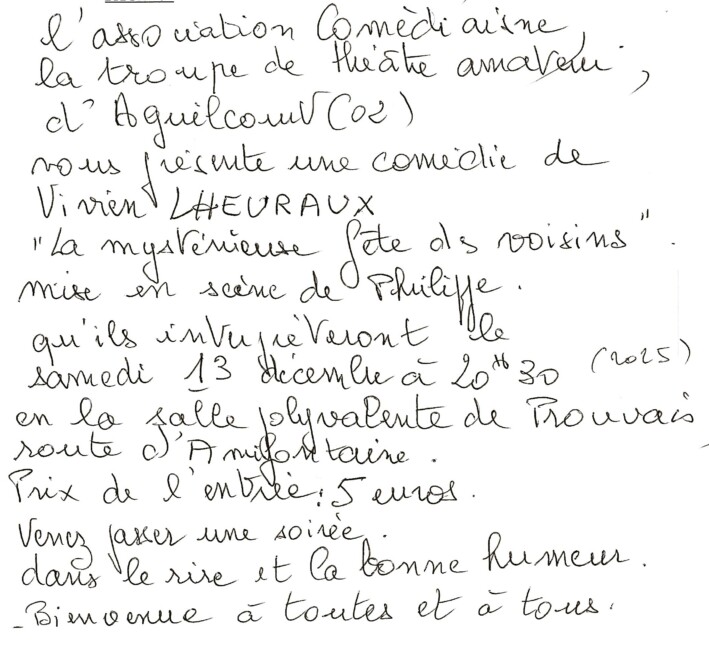 l'association Comèdi'aisne,
la troupe de théâtre amateur,
d'Aguilcourt (02)
vous présente une comédie de
Vivien LHEURAUX
"La mystérieuse fête des voisins".
mise en scène de Philippe.
qu'ils interprèteront le
samedi 13 décembre à 20H30 (2025)
en la salle polyvalente de Prouvais
route d'Amifontaine.
Prix de l'entrée: 5 euros.
Venez passer une soirée.
dans le rire et la bonne humeur.
- Bienvenue à toutes et à tous.